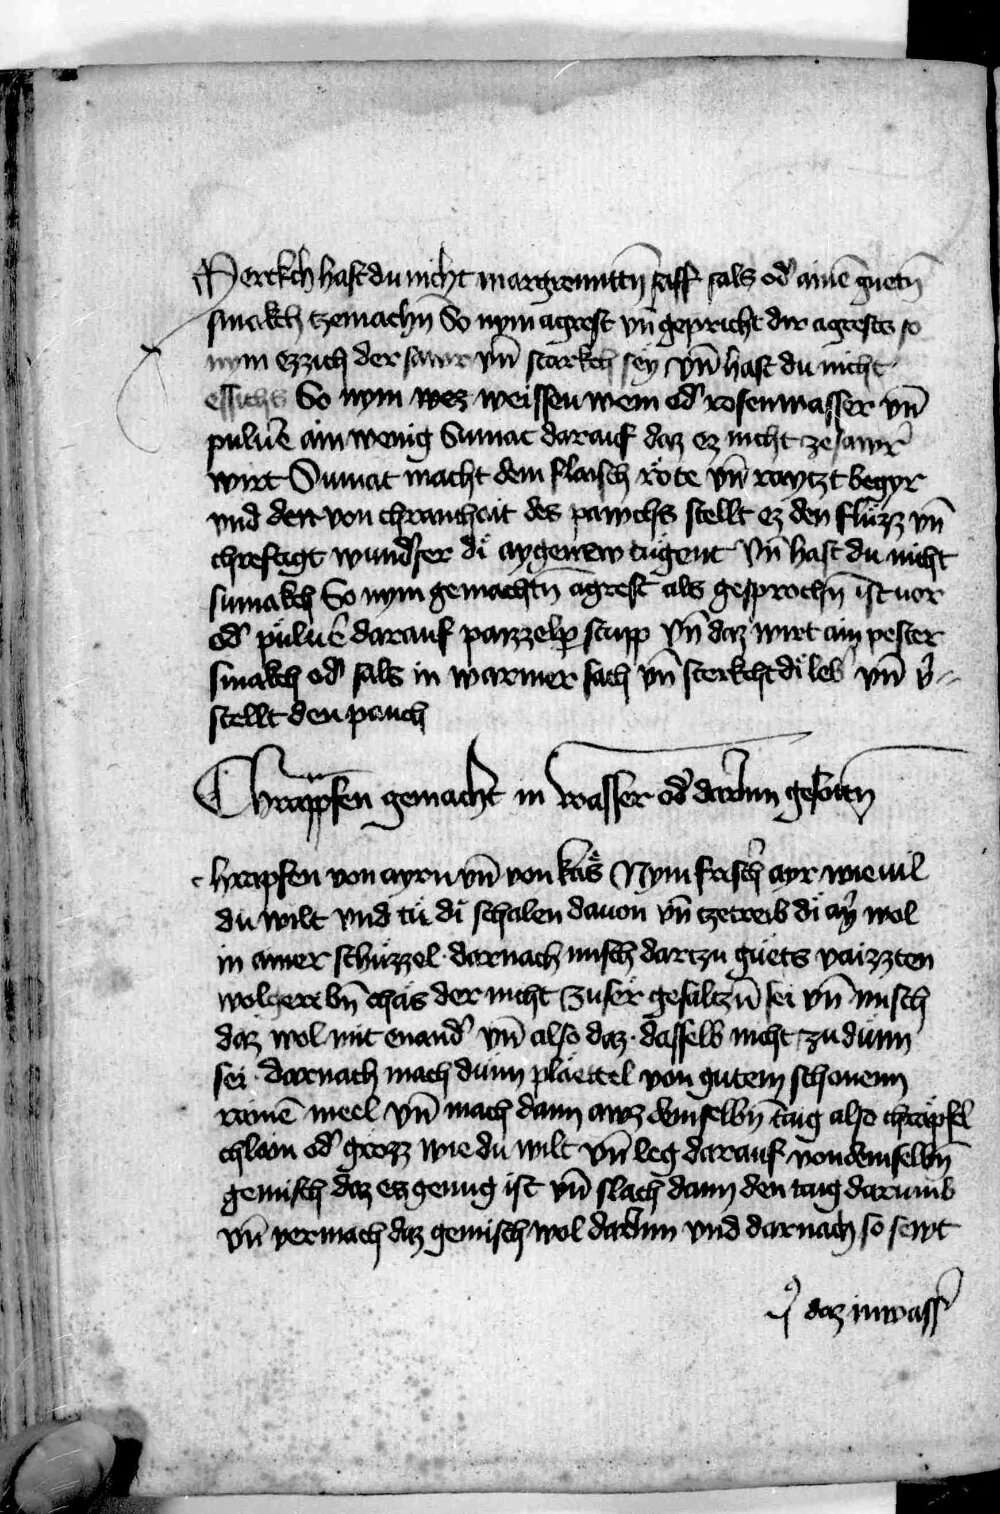 Merkch hast du nicht margrenittñ saff sals od̓ ainē guetñ
smakch tzemachñ So nym agrest vn̄ gepricht dir agrests so
nym ezzich der sawr vn̄ starkch sey vn̄ hast du nicht
essichs So nym wez weissen wein od̓ rosenwasser vn̄
puluē ain wenig Sumac darauf daz ez nicht ze sawr
wirt Sumac macht dem flaisch röte vn̄ raytzt begyr
vnd den von chrancheit des pawchs stellt ez den flüzz vn̄
chreftigt wund̓ser di aygenew tugent Vn̄ hast du nicht
sumakch So nym gemachtñ agrest als gesprochñ ist uor
od̓ puluē darauf paizzelp̲ stupp vn̄ daz wirt ain pester
smakch od̓ sals in warmer sach vn̄ sterkcht di leb̓ vn̄ v̓-
stellt den pauch
Chrapfen gemacht in wasser od̓ darinn gesotñ
hrapfen von ayrn vn̄ von käs Nym frisch̓ ayr wieuil
du wilt vnd tü di schalen dauon vn̄ tzetreib di ay̓ wol
in ainer schüzzel · darnach misch dartzu güets vaizzten
wolgeribñ chäs der nicht zuser gesaltzñ sei vn̄ misch
daz wol mit enand̓ vn̄ also daz · dasselb nicht zu dünn
sei · darnach mach dünn plaettel von gutem schönenn
rainē meel vn̄ mach dann awz demselbñ taig also chräpfel
chlain od̓ grozz wie du wilt vn̄ leg darauf von demselbñ
gemisch daz es genug ist vn̄ slach dann den taig darumb
vn̄ vermach daz gemisch wol darinn vnd darnach so sewt
daz in wass̓